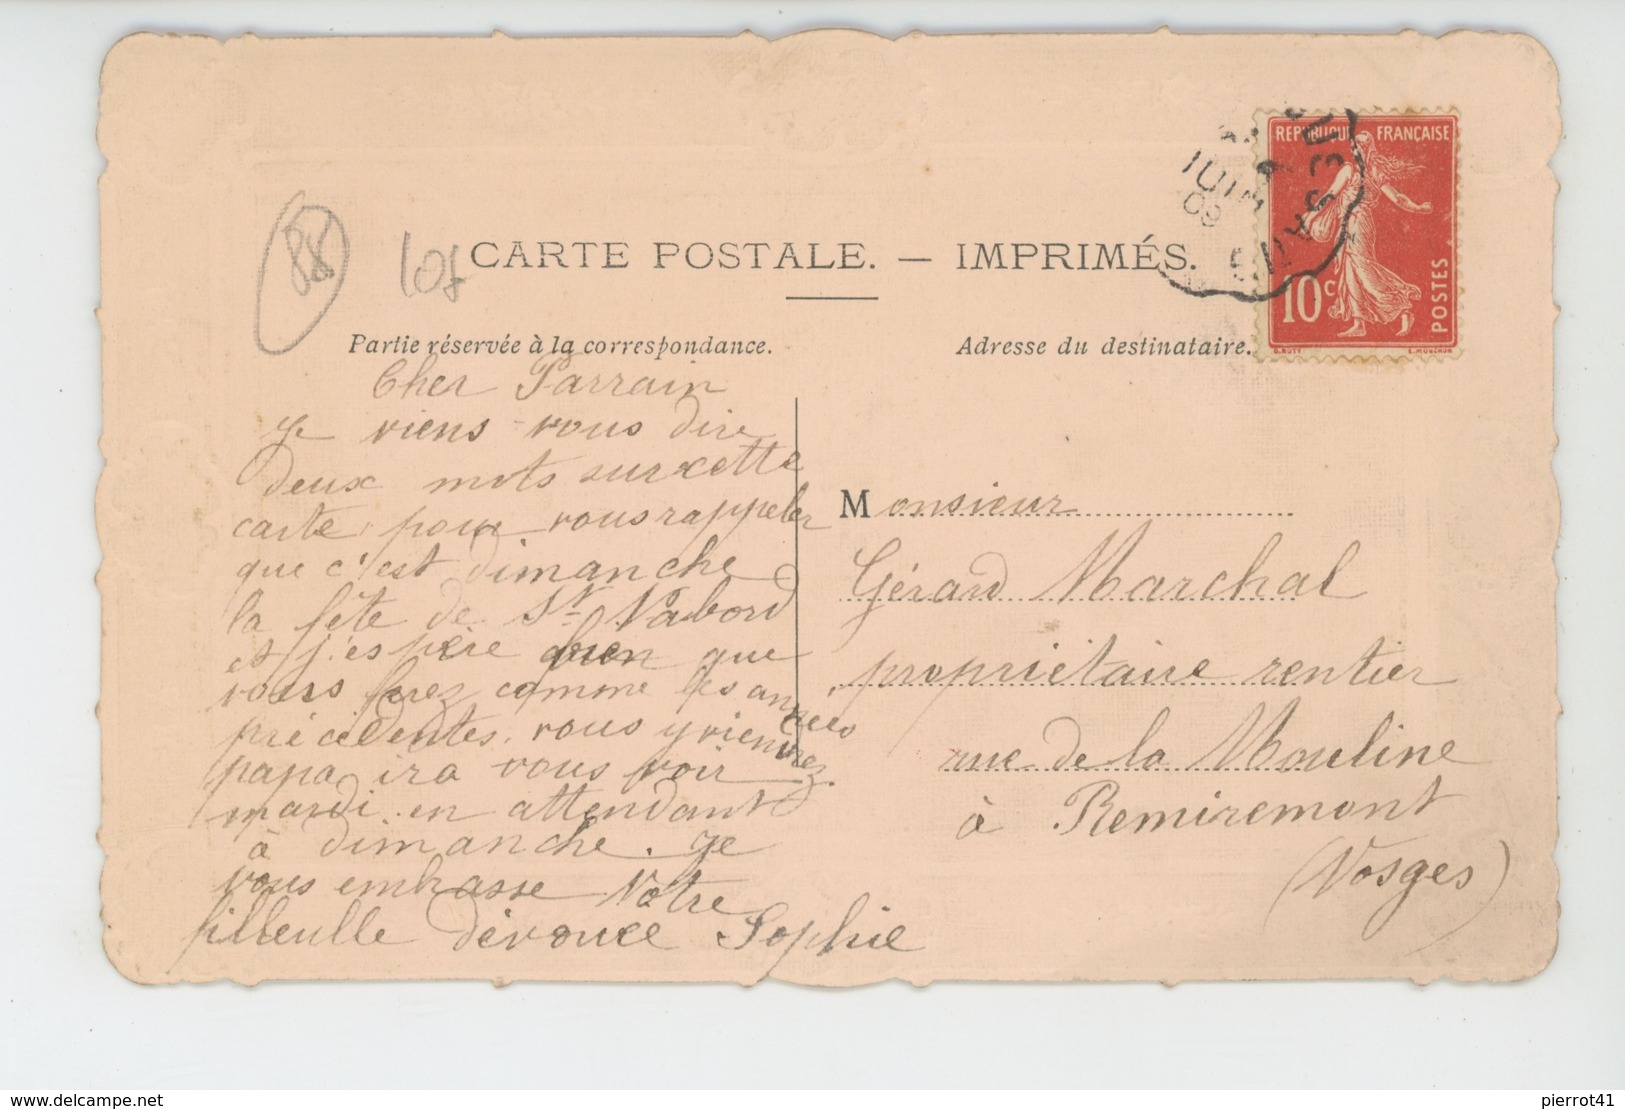 88
10f
CARTE POSTALE. — IMPRIMÉS.
Partie réservée à la correspondance.
Adresse du destinataire.
REPUBLIQUE FRANÇAISE
10c
POSTES
O.ROTY
E.MOUCHON
JUIN
09
Cher Parrain
Je viens vous dire
deux mots sur cette
carte pour vous rappeler
que c'est dimanche
la fête de St. Nabord
et j'espère bien que
vous ferez comme les années
précédentes. vous y viendrez
papa ira vous voir
mardi en attendant
à dimanche. Je
vous embrasse Votre
filleulle dévouée Sophie
Monsieur
Gérard Marchal
propriétaire rentier
rue de la Mouline
à Remiremont
(Vosges)
www.delcampe.net
pierrot41